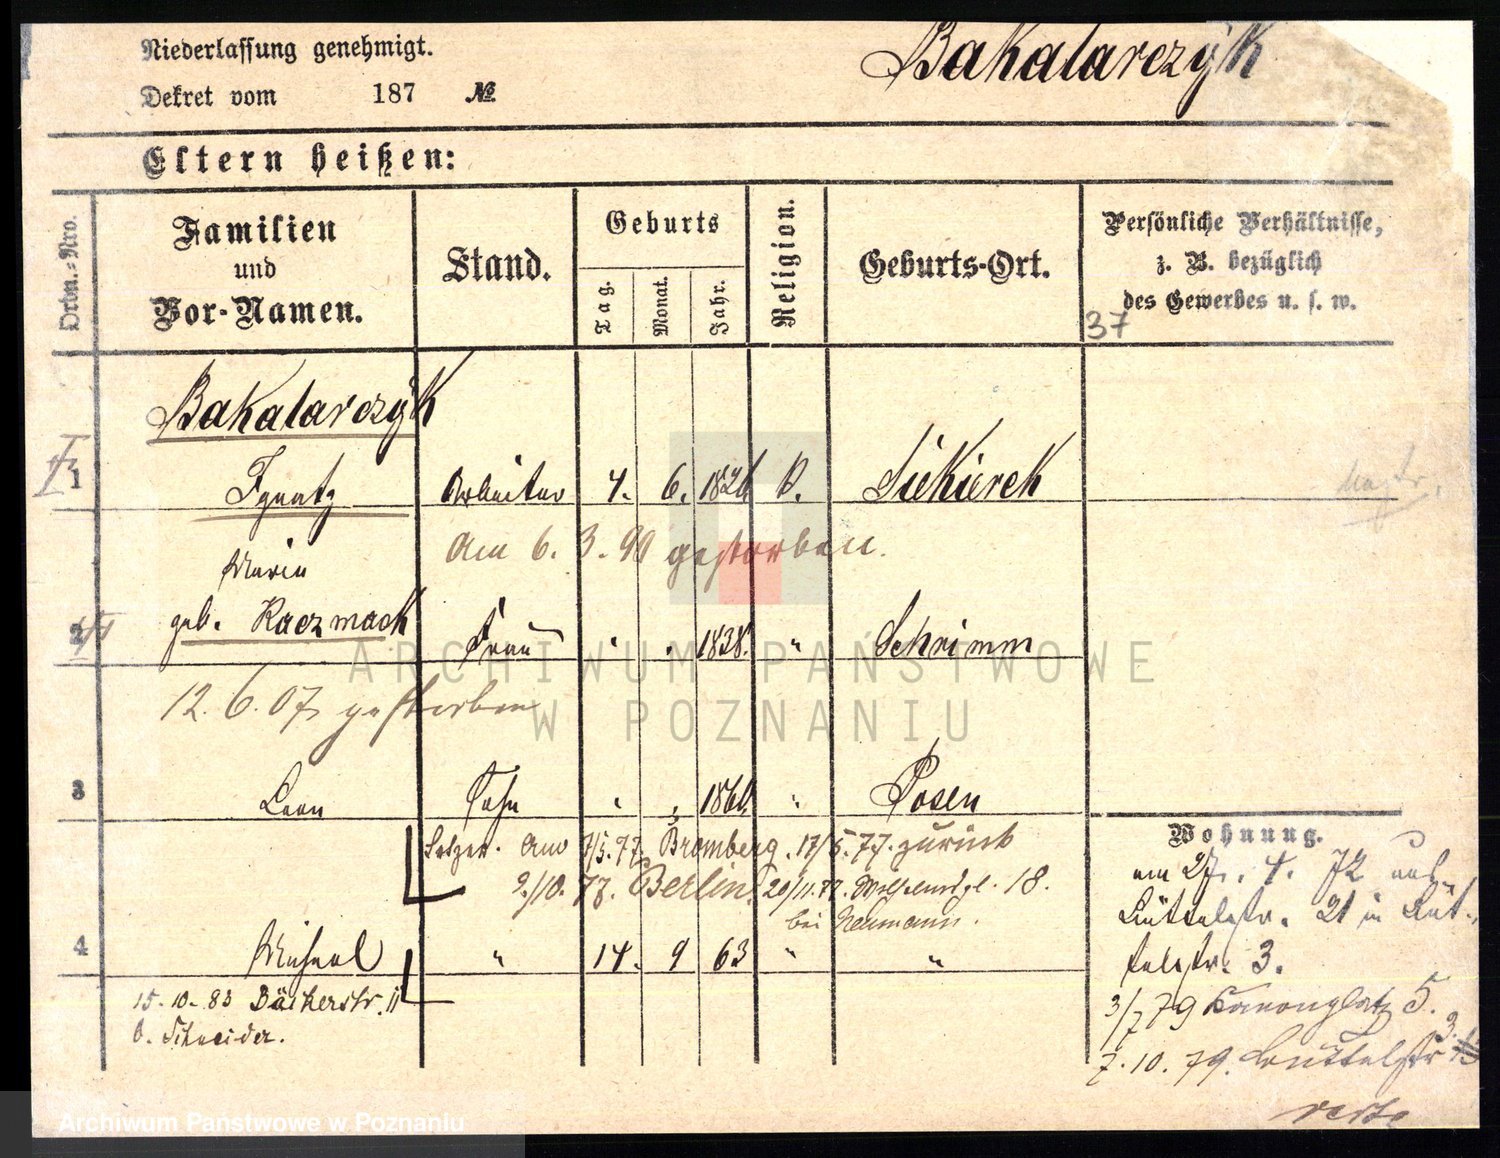 Niederlassung genehmigt.
Bakalarczÿk
Dekret vom 187 №
Eltern heißen:
Ordn.=Nro.
Familien
und
Vor-Namen.
Stand.
Geburts
Tag.
Monat.
Jahr.
Religion.
Geburts-Ort.
Persönliche Verhältnisse,
z. B. bezüglich
des Gewerbes u. s. w.
37
Bakalarczÿk
1 Ignatz Arbeiter 4. 6. 1826 k. Siekierek
Am 6. 3. 90 gestorben.
Maria
2 geb. Kaczmack Frau " " 1838. " Schrimm
12. 6. 07 gestorben
3 Leon Sohn " " 186 " Posen
Setzer. Am 7/5. 77. Bromberg. 17/5. 77. zurück
2./10. 77. Berlin. 20/11. 77. 18.
bei Neumann.
4 Michael " 14. 9 63 " "
15. 10. 83 Bäckerstr. 11
b. Schneider.
Wohnung.
am 27. 4. 72 auf
Büttelstr. 21 in Büt-
telstr. 3.
3/7 79 Kanonenplatz 5.
7. 10. 79. Büttelstr 3.
verte
ARCHIWUM PAŃSTWOWE
W POZNANIU
Archiwum Państwowe w Poznaniu